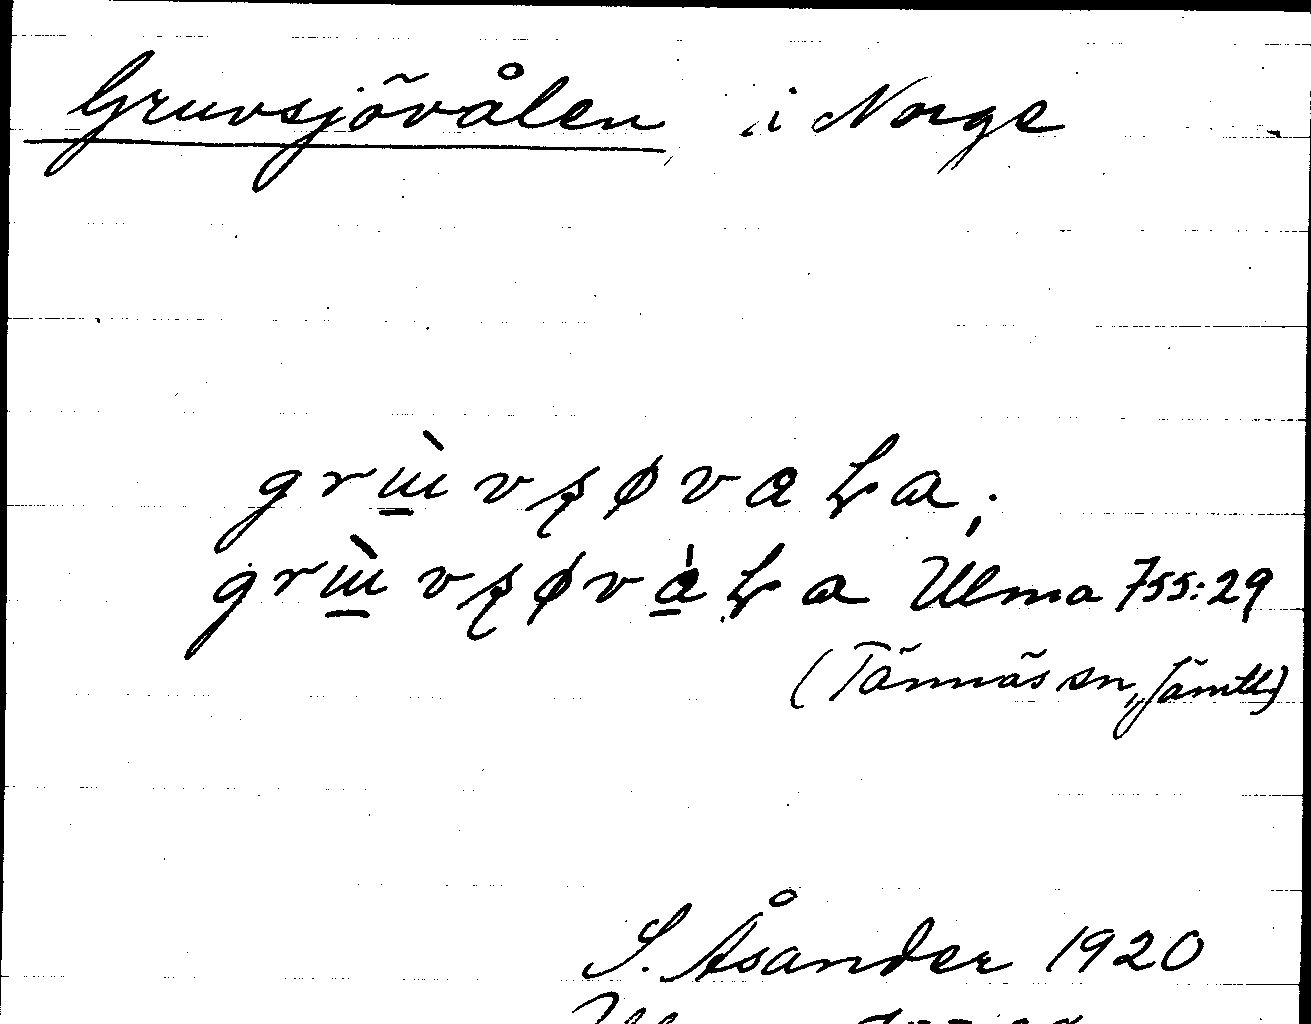 Gruvsjövålen i Norge
grɯ̱̀vʂøvaɽa;
grɯ̱̀vʂøvà̱ɽa Ulma 755:29
(Tännäs sn, Jämtl.)
S. Åsander 1920